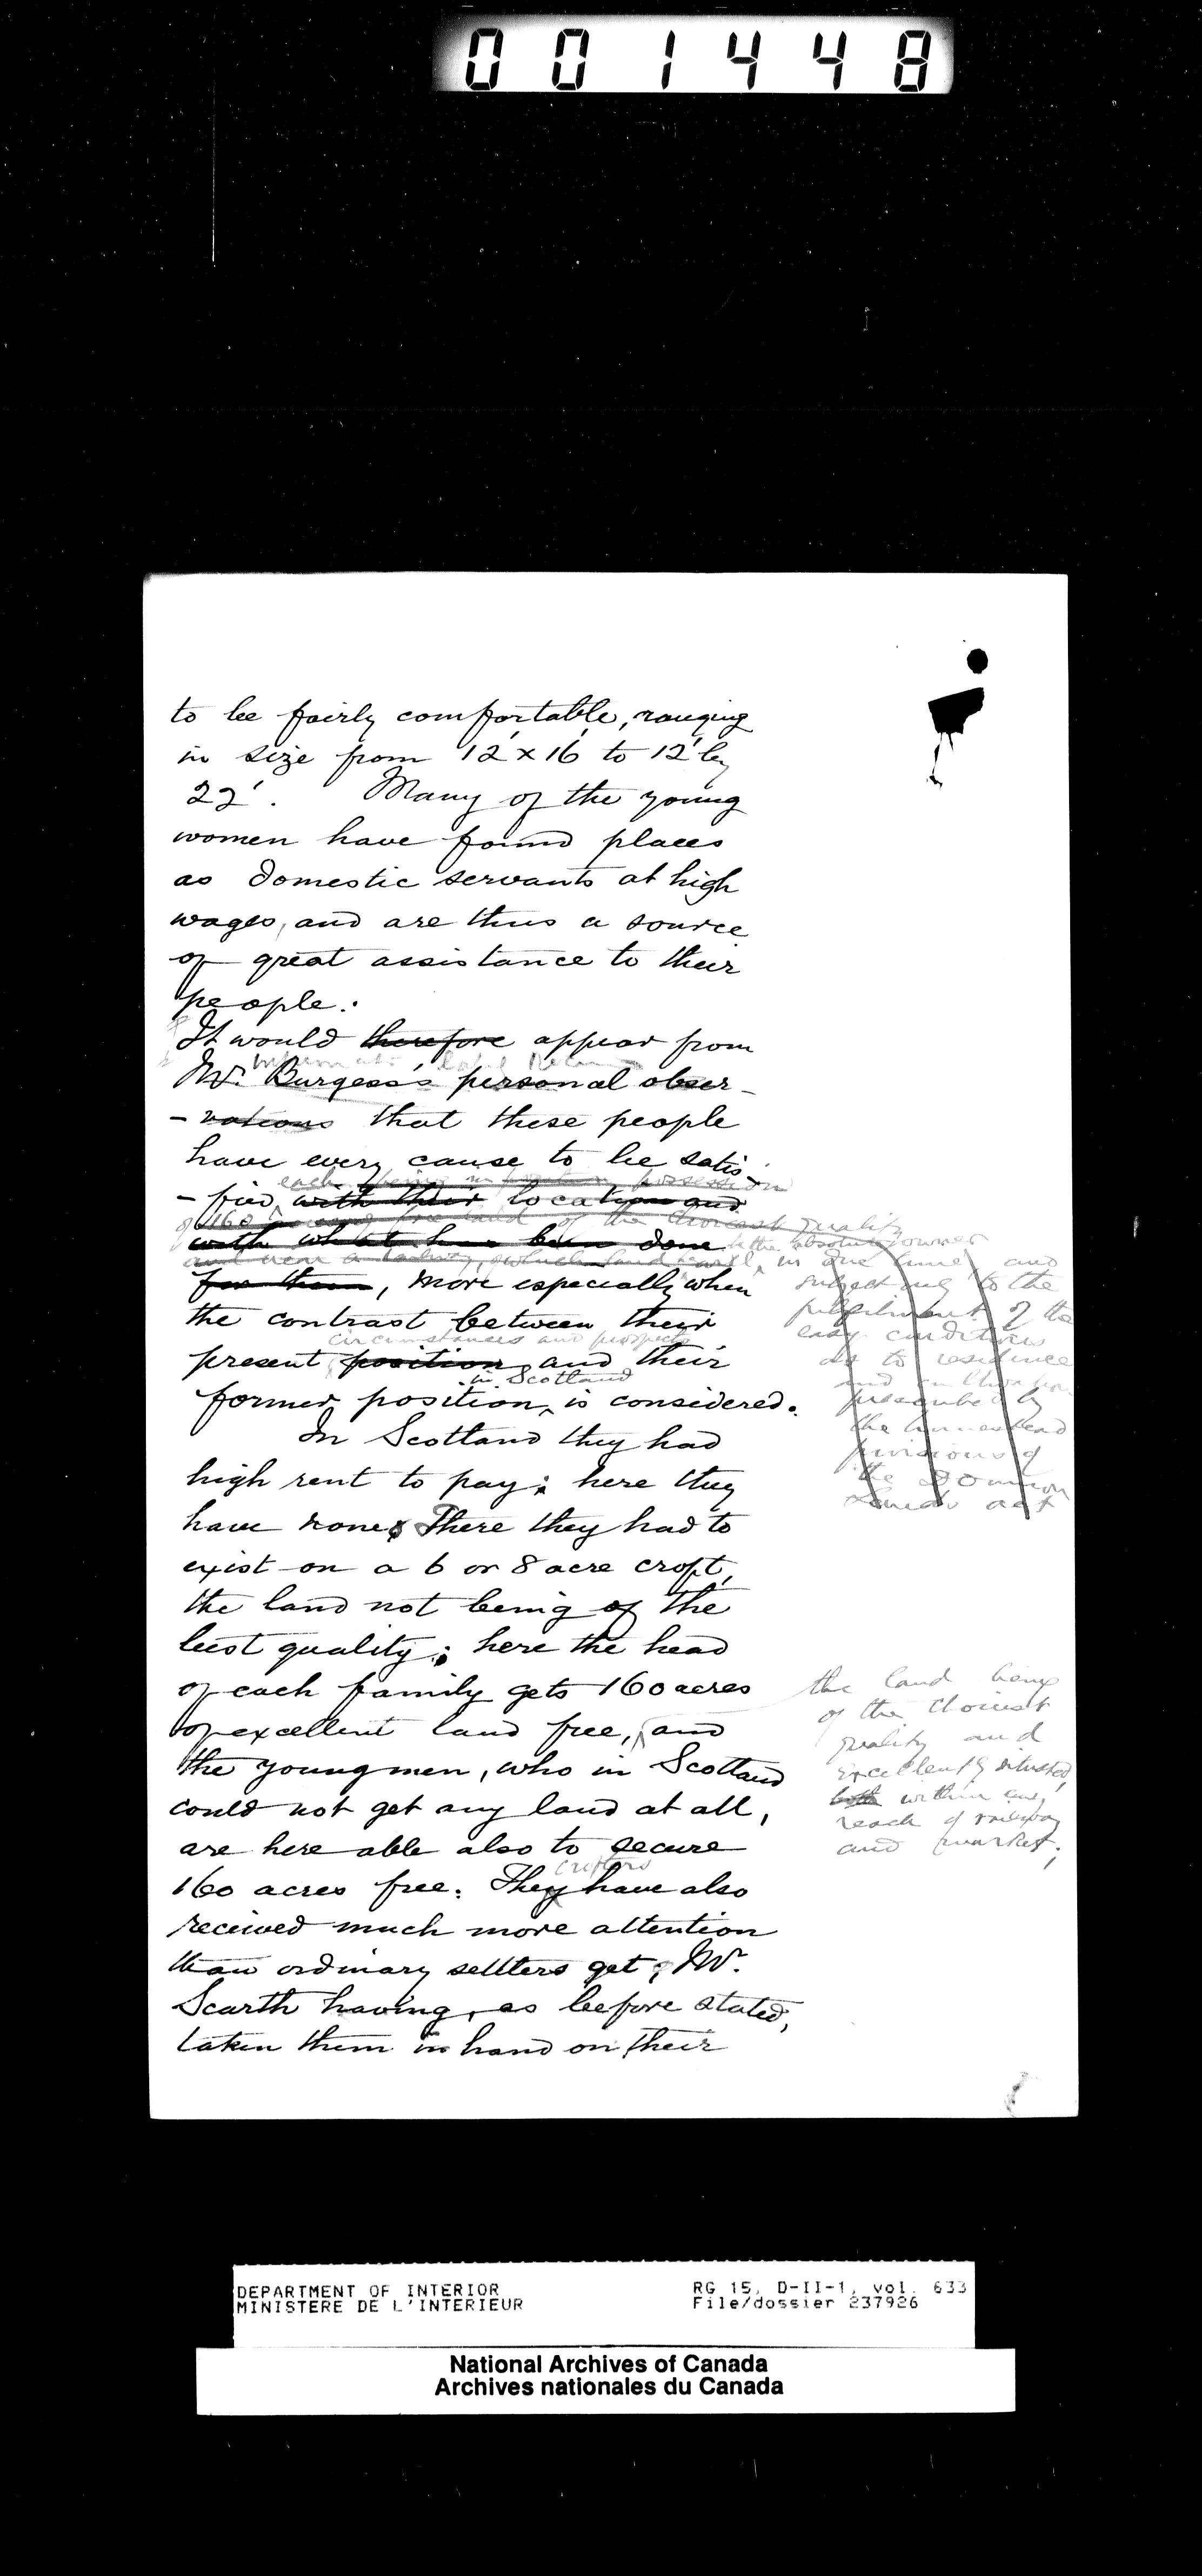 001448
to be fairly comfortable, ranging
in size from 12' x 16' to 12' by
22'. Many of the young
women have found places
as domestic servants at high
wages, and are thus a source
of great assistance to their
people.
It would therefore appear from
Mr. Burgess's personal obser-
-vations that these people
have every cause to be satis-
each being in possession
-fied with their location and
of 160 free land of the choicest quality
with what has been done the absolute owner
and near a railway, which land will, in due time, and
for them, more especially when
subject to the
the contrast between their
fulfilment of the
circumstances and prospects
easy conditions
present position and their
as to residence
in Scotland
and cultivation
former position, is considered.
prescribed by
the homestead
In Scotland they had
provisions of
high rent to pay; here they
the Dominion
Lands act
have none. There they had to
exist on a 6 or 8 acre croft,
the land not being of the
best quality; here the head
of each family gets 160 acres
of excellent land free, and
the land being
of the choicest
quality and
excellently situated,
both within easy
reach of railway
and market;
the young men, who in Scotland
could not get any land at all,
are here able also to secure
crofters
160 acres free. They have also
received much more attention
than ordinary settlers get; Mr.
Scarth having, as before stated,
taken them in hand on their
DEPARTMENT OF INTERIOR
MINISTERE DE L'INTERIEUR
RG 15, D-II-1, vol. 633
File/dossier 237926
National Archives of Canada
Archives nationales du Canada